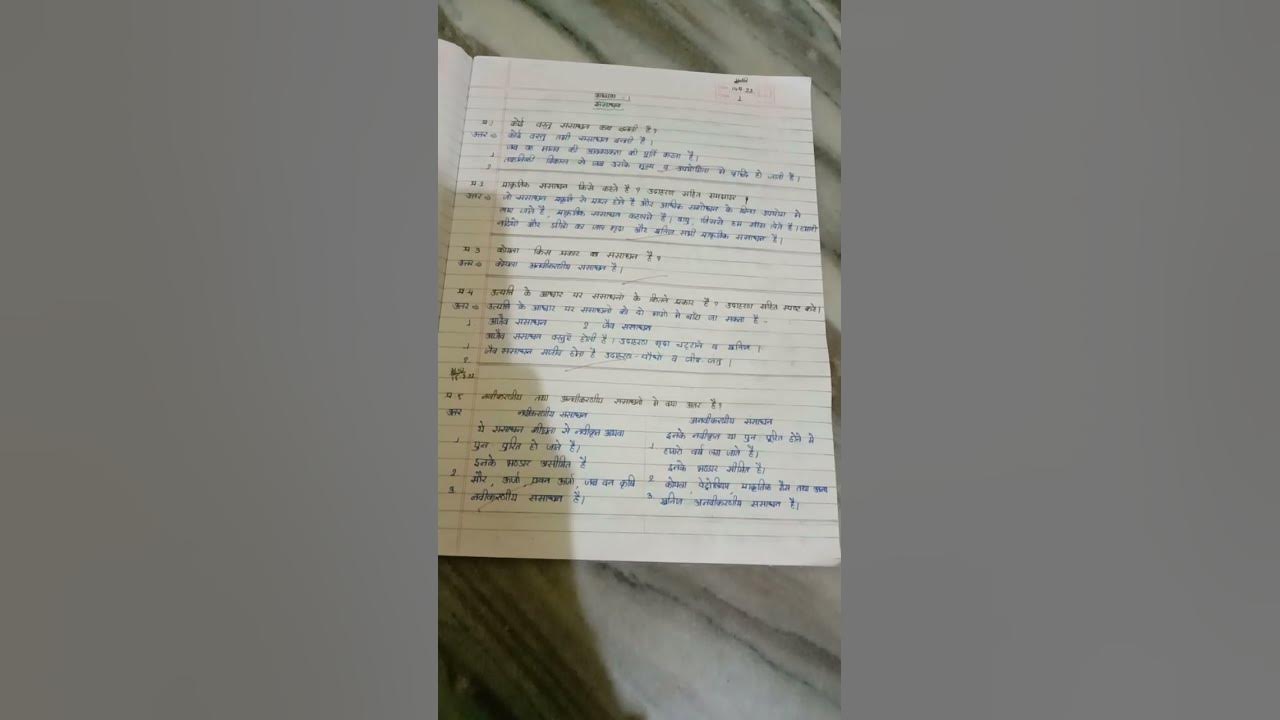 अध्याय - 1
संसाधन
1
प्र.1 कोई वस्तु संसाधन कब बनती है?
उत्तर कोई वस्तु तभी संसाधन बनती है।
1 जब वह मानव की आवश्यकता की पूर्ति करता है।
2 तकनीकी विकास से जब उसके मूल्य व उपयोगिता में वृद्धि हो जाती है।
प्र.2 प्राकृतिक संसाधन किसे कहते है? उदाहरण सहित समझाए।
उत्तर जो संसाधन प्रकृति से प्राप्त होते है और अधिक संशोधन के बिना उपयोग में
लाए जाते है, प्राकृतिक संसाधन कहलाते है। वायु, जिसमें हम साँस लेते है। हमारी
नदियों और झीलों का जल, मृदा और खनिज सभी प्राकृतिक संसाधन है।
प्र.3 कोयला किस प्रकार का संसाधन है?
उत्तर कोयला अनवीकरणीय संसाधन है।
प्र.4 उत्पत्ति के आधार पर संसाधनों के कितने प्रकार है? उदाहरण सहित स्पष्ट करे।
उत्तर उत्पत्ति के आधार पर संसाधनों को दो भागो में बाँटा जा सकता है -
1 अजैव संसाधन 2 जैव संसाधन
1. अजैव संसाधन वस्तुएँ होती है। उदाहरण मृदा चट्टाने व खनिज।
2. जैव संसाधन सजीव होता है उदाहरण - पौधो व जीव जंतु।
प्र.5 नवीकरणीय तथा अनवीकरणीय संसाधनो में क्या अंतर है?
उत्तर नवीकरणीय संसाधन अनवीकरणीय संसाधन
1. ये संसाधन शीघ्रता से नवीकृत अथवा
पुनः पूरित हो जाते है।
2. इनके भण्डार असीमित है
3. सौर, ऊर्जा, पवन ऊर्जा, जल वन कृषि
नवीकरणीय संसाधन है।
1. इनके नवीकृत या पुन पूरित होने मे
हजारो वर्ष लग जाते है।
2. इनके भण्डार सीमित है।
3. कोयला, पेट्रोलियम, प्राकृतिक गैस तथा अन्य
खनिज, अनवीकरणीय संसाधन है।